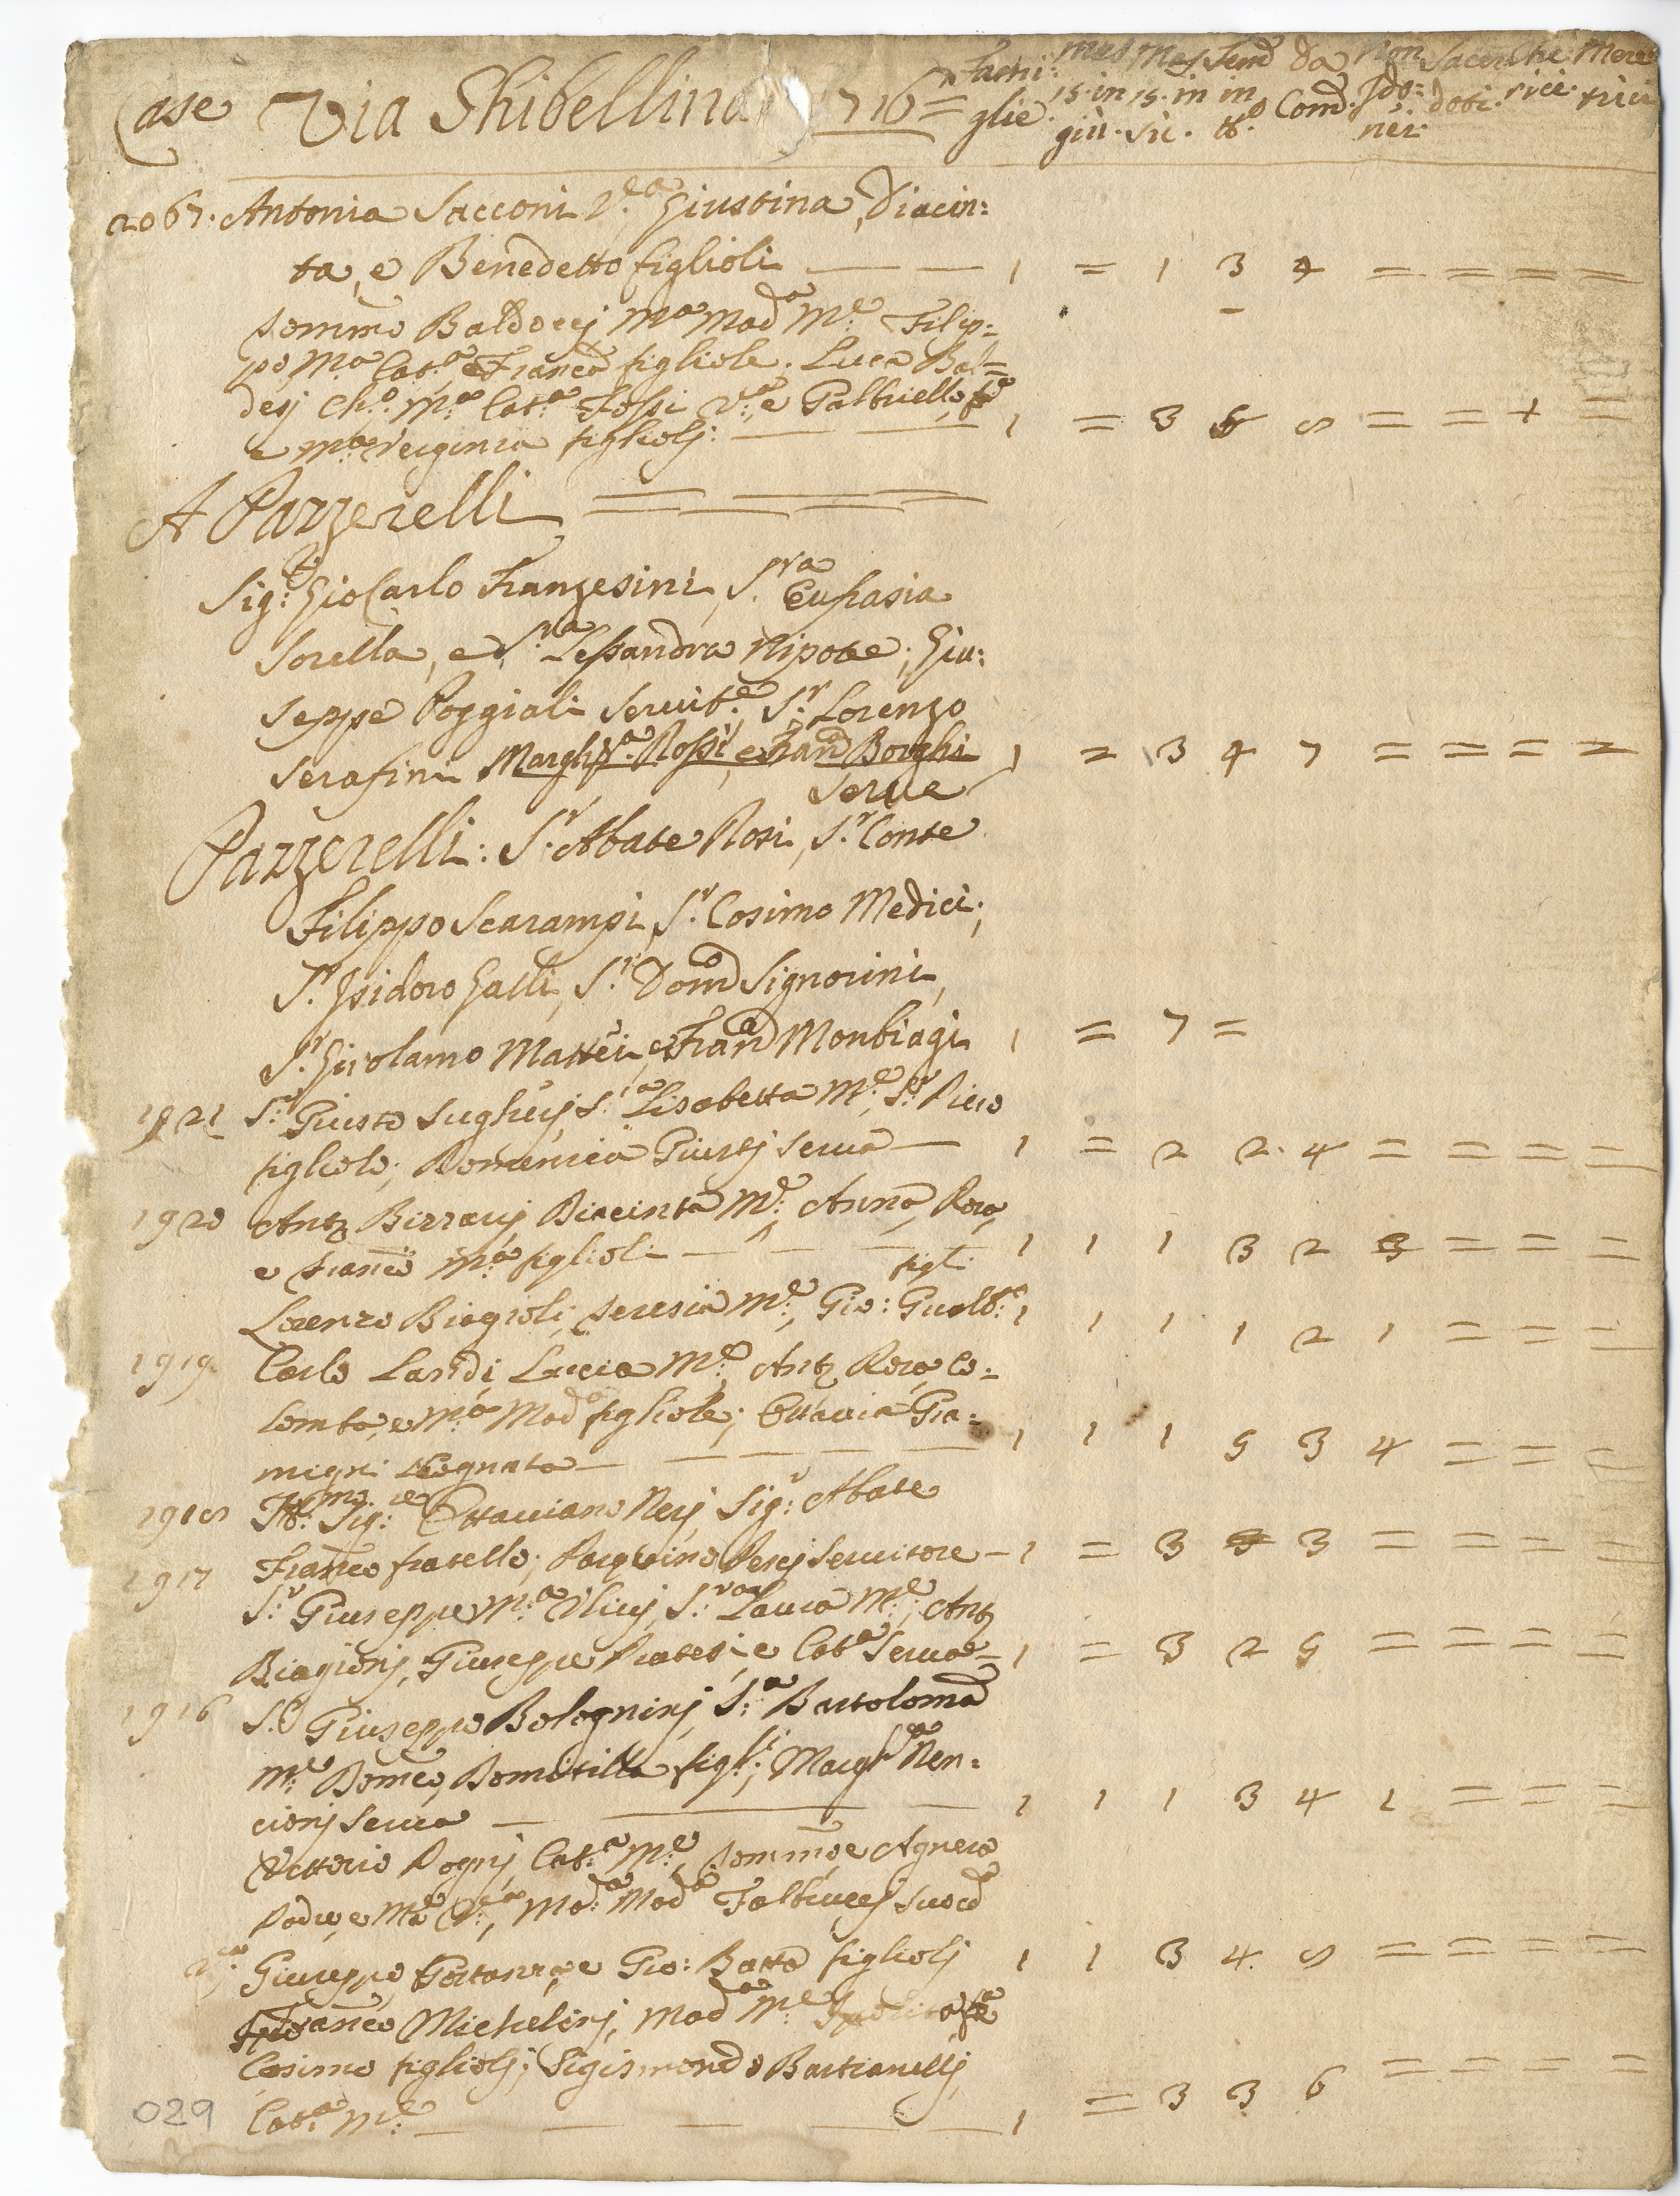 Case Via Ghibellina 1716 = Fami: Mas Mas Fem Da Non Sacer Che Mere
glie. 15. in 15. in in Com.d Ido: doti. rici. trici
giù. sù. tt.o neì.
2067. Antonia Sacconi V.a Giustina, Diacin:
ta, e Benedetto figlioli — — 1 = 1 3 4 = = = =
Tommo Baldocej M.a Mad.a M.e Filip=
po, M.a Cat.a e Franca figliole. Luca Bal=
desj Ch.o M.a Cat.a Fossi V.a e Gabbriello
e M.a Verginia figliolj: — — 1 = 3 5 8 = = 1 =
A Pazzerelli = = =
Sig.r Gio Carlo Franzesini, S.ra Eufrasia
Sorella, e S.ra Lessandra Nipote; Giu:
seppe Poggiali Servit.e, S.r Lorenzo
Serafini Margh.ta Rossi, e Fran.a Borghi 1 = 3 4 7 = = = =
Serve
Pazzerelli: S.r Abate Rosi, S.r Conte
Filippo Scarampi, S.r Cosimo Medici;
S.r Isidoro Galli, S.r Dom.o Signorini,
S.r Girolamo Mattei, e Fran.o Monbiagi 1 = 7 =
1921 S.r Giusto Sugherj, S.ra Lisabetta M.e, S.r Piero
figliolo; Domenica Giustj serva — 1 = 2 2. 4 = = = =
1920 Ant.o Bizzarij Diacinta M.e, Anna, Rosa,
e Franco M.a figlioli — — — 1 1 1 3 2 3 = = =
figl:
Lorenzo Biagioli, Teresia M.e, Gio: Gualb.o 1 1 1 1 2 1 = = =
1919 Carlo Landi, Lucia M.e, Ant.o Rosa, Co=
lomba, e M.a Mad.a figliole; Ottavia Gia=
migni Cognata — — — 1 1 1 5 3 4 = = =
1918 Ill.mo Sig.re Ottaviano Nerj Sig.r Abate
1917 Franco fratello; Pasquino Pescj Servitore — 1 = 3 3 = = = =
S.r Giuseppe M.a Ulivj, S.ra Laura M.e; Ant.o
Biagionj, Giuseppe Pratesi, e Cat.a Serva — 1 = 3 2 5 = = = =
1916 S.r Giuseppe Bologninj, S.a Bartolomea
M.e Domco, Domitilla figl.i; Margh.a Nen=
cionj serva — — 1 1 1 3 4 1 = = =
Vettorio Pognj, Cat.a M.e, Tommo, e Agnesa
Padre, e M.a V.a, M.a Mad.a Falbuccj Suoc.a
Giuseppe, Gostanza, e Gio: Batta figliolj 1 1 3 4 8 = = = =
Franco Michelinj, Mad.a M.e
Cosimo figliolj; Sigismondo Bastianellj,
Cat.a M.e — — — 1 = 3 3 6 = = = =
029